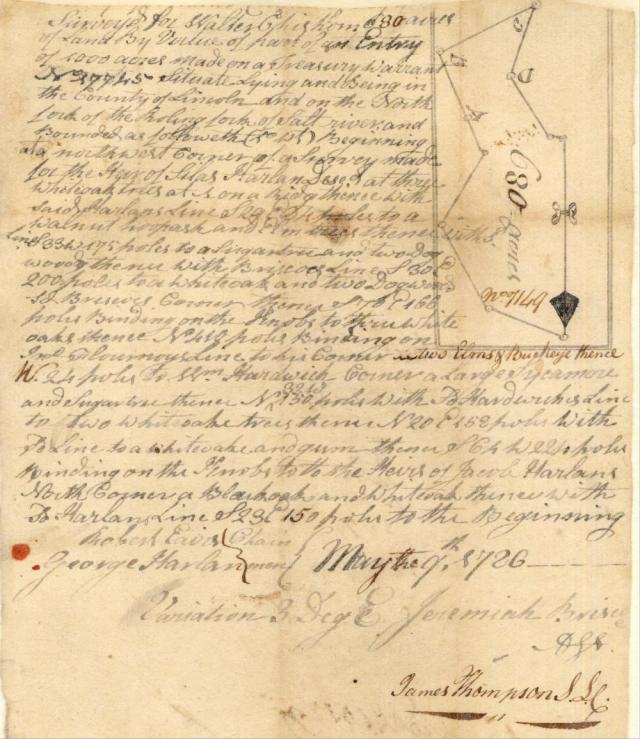 Survey'd for Walter E 680 acres
of Land By Virtue of part of an Entry
of 1000 acres made on a Treasury Warrant
No 37745 Situate Lying and Being in
the County of Lincoln and on the North
fork of the Roling fork of Salt river and
Bounded as followeth (To wit) Beginning
at a northwest Corner of a Survey made
for the Heir of Silas Harlan Desed at three
whiteoak trees at A on a Ridg thence with
said Harlans Line poles to a
walnut hoopash and Elm trees thence with
Line 33 W 175 poles to a Sugartree and two Dog
woods thence with Briscoes Line S 30
200 poles to a whiteoak and two Dogwoods
Sd Briscoes Corner thence E 166
poles Binding on the Knobs to three white
oaks thence N 418 poles Binding on
Flournoys Line to his Corner two Elms & Buckeye thence
W. 24 poles To Wm Hardwich Corner a Large Sycamore
and Sugartree thence N 32 W 130 poles with Sd Hardwichs Line
to two whiteoake trees thence N 20 E 152 poles with
Sd Line to a whiteoake and gum thence S 64 W 224 poles
Binding on the Knobs to to the Heirs of Jacob Harlans
North Corner a Blackoak and Whiteoak thence with
Sd Harlans Line S 23 E 150 poles to the Beginning
Robert Chain
George Harlan men
May the 9th 1786
Variation 3 Deg E Jeremiah Briscoe
James Thompson S. L. C.
B
D
A
680 acres
No 7149